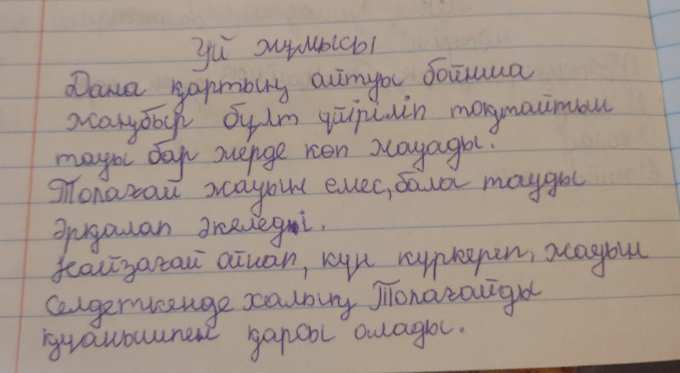 Үй жұмысы
Дана қартың айтуы бойнша
жаңбыр бұлт үйіріліп тоқтайтын
тауы бар жерде көп жауады.
Толағай жауын емес, бала тауды
әрқалап әкеледі.
Найзағай ойнап, күн күркереп, жауын
селдеткенде халық Толағайды
қуанышпен қарсы алады.